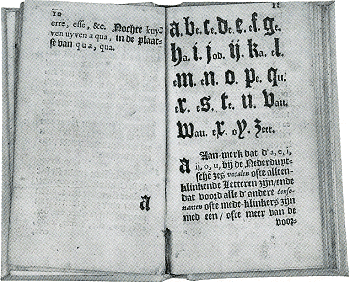 10
erre, esse, &c. Nochte
ven uyven a qua, in de plaat-
se van qua, qua.
a
11
a. be. ce. de. e. ef. ge.
ha. i. jod. ij. ka. el.
em. en. o. pe. qu.
er. es. te. u. vau.
wau. ex. oy. Zete.
Aan-merk dat d' a, e, i,
ij, o, u, bij de Nederduyt-
sche zes vocalen ofte alleen-
klinkende Letteren zijn/ende
dat voord alle d' andere conso-
nanten ofte mede-klinkers zijn
met een/ ofte meer van de
voor-